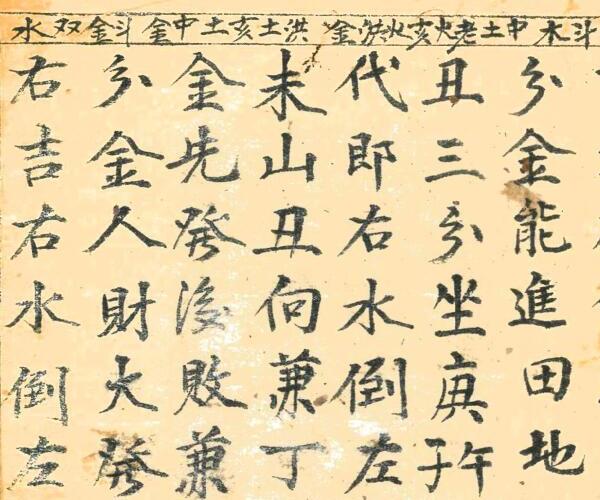 斗木中土老火亥火洪金洪土亥土中金斗金双水
分金能進田地
丑三分坐庚午子
代即右水倒左
未山丑向兼丁
金先發後敗兼
分金人財大發
右吉右水倒左